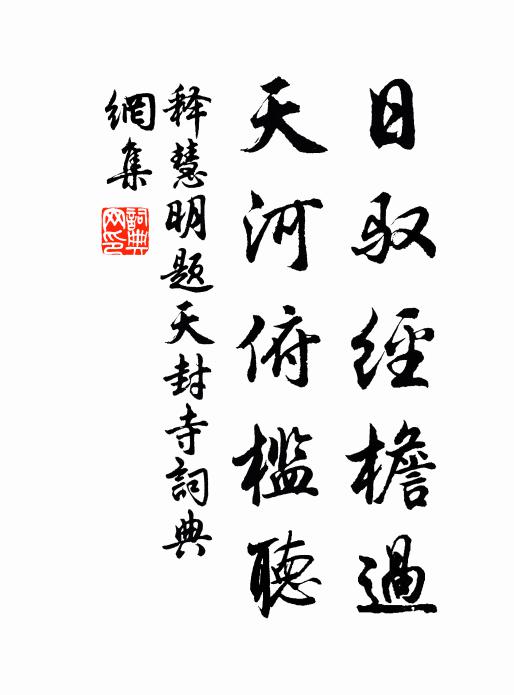 日驭經檐過
天河俯檻聽
释慧明题天封寺詞典
網集
詞典網印